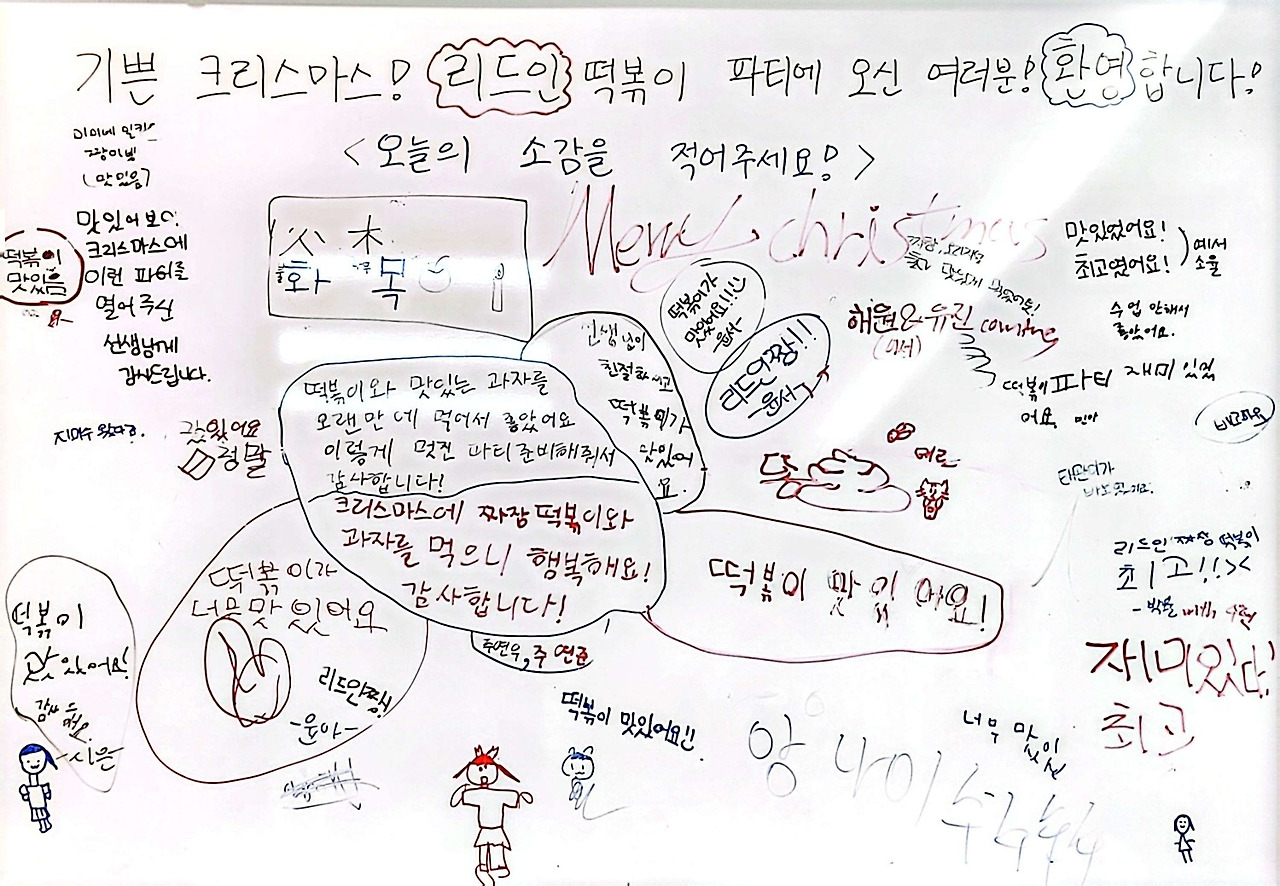 기쁜 크리스마스! 리드인 떡볶이 파티에 오신 여러분! 환영합니다!
<오늘의 소감을 적어주세요!>
(맛있음)
떡볶이
맛있음
맛있어보여.
크리스마스에
이런 파티를
열어주신
선생님께
감사드립니다.
木
화 목
Merry christmas
떡볶이가
맛있어요!!
-윤서-
리드인짱!!
-윤서-
선생님이
친절하시고
떡볶이가
맛있어
요.
해원&유진 coming
맛있었어요!
최고였어요!
예서
소율
수업 안해서
좋았어요.
떡볶이 파티 재미 있었
어요 민아
배고파요
떡볶이와 맛있는 과자를
오랜만에 먹어서 좋았어요
이렇게 멋진 파티준비해줘서
감사합니다!
크리스마스에 짜장 떡볶이와
과자를 먹으니 행복해요!
감사합니다!
주연우, 주연준
맛있어요
정말
떡볶이가
너무맛있어요
리드인짱!
-윤아-
떡볶이 맛있어요!
떡볶이
맛있어요!
감사
해요
-시은
떡볶이 맛있어요!!
메론
태관이가
리드인 짜장 떡볶이
최고!!><
재미있다!
최고
너무 맛있